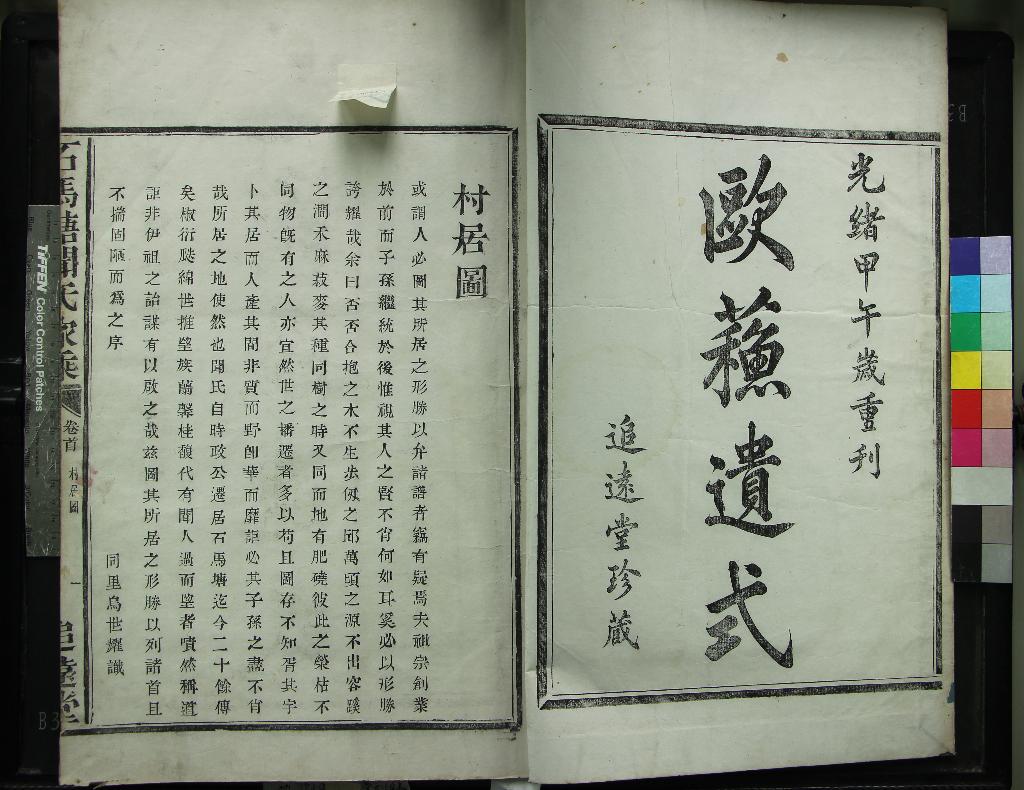 光緒甲午歲重刊
歐蘓遺式
追遠堂珍藏
村居圖
或謂人必圖其所居之形勝以弁諸譜者竊有疑焉夫祖宗創業
於前而子孫繼統於後惟視其人之賢不肖何如耳奚必以形勝
誇耀哉余曰否否合抱之木不生步仭之邱萬頃之源不出容蹊
之澗禾麻菽麥其種同樹之時又同而地有肥磽彼此之榮枯不
同物旣有之人亦宜然世之播遷者多以苟且圖存不知胥其宇
卜其居而人產其間非質而野卽華而靡詎必其子孫之盡不肖
哉所居之地使然也聞氏自時政公遷居石馬塘迄今二十餘傳
矣椒衍瓞綿世推望族蘭馨桂馥代有聞人過而望者嘖然稱道
詎非伊祖之詒謀有以啟之哉兹圖其所居之形勝以列諸首且
不揣固陋而爲之序
同里烏世耀識
石馬塘聞氏家乘
卷首
村居圖
一
追遠堂
TIFFEN Color Control Patches